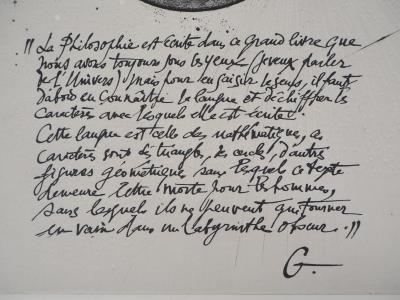 " La Philosophie est écrite dans ce grand livre que
nous avons toujours sous les yeux (je veux parler
de l'Univers) mais pour en saisir le sens, il faut
d'abord en connaître la langue et déchiffrer les
caractères avec lesquels elle est écrite.
Cette langue est celle des mathématiques, ses
caractères sont des triangles, des cercles, d'autres
figures géométriques sans lesquels ce texte
demeure lettre morte pour les hommes,
sans lesquels ils ne peuvent que tourner
en vain dans un labyrinthe obscur. "
G.